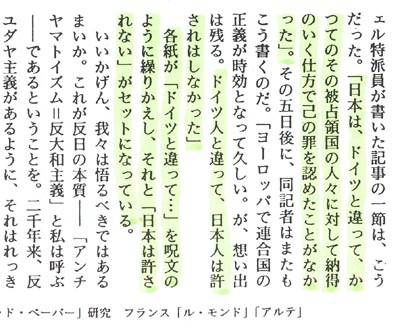 ェル特派員が書いた記事の一節は、こう
だった。「日本は、ドイツと違って、か
つてのその被占領国の人々に対して納得
のいく仕方で己の罪を認めたことがなか
った」。その五日後に、同記者はまたも
こう書くのだ。「ヨーロッパで連合国の
正義が時効となって久しい。が、想い出
は残る。ドイツ人と違って、日本人は許
されはしなかった」
各紙が「ドイツと違って…」を呪文の
ように繰りかえし、それと「日本は許さ
れない」がセットになっている。
いいかげん、我々は悟るべきではある
まいか。これが反日の本質――「アンチ
ヤマトイズム＝反大和主義」と私は呼ぶ
――であるということを。二千年来、反
ユダヤ主義があるように、それはれっき
ド・ペーパー」研究　フランス「ル・モンド」「アルテ」